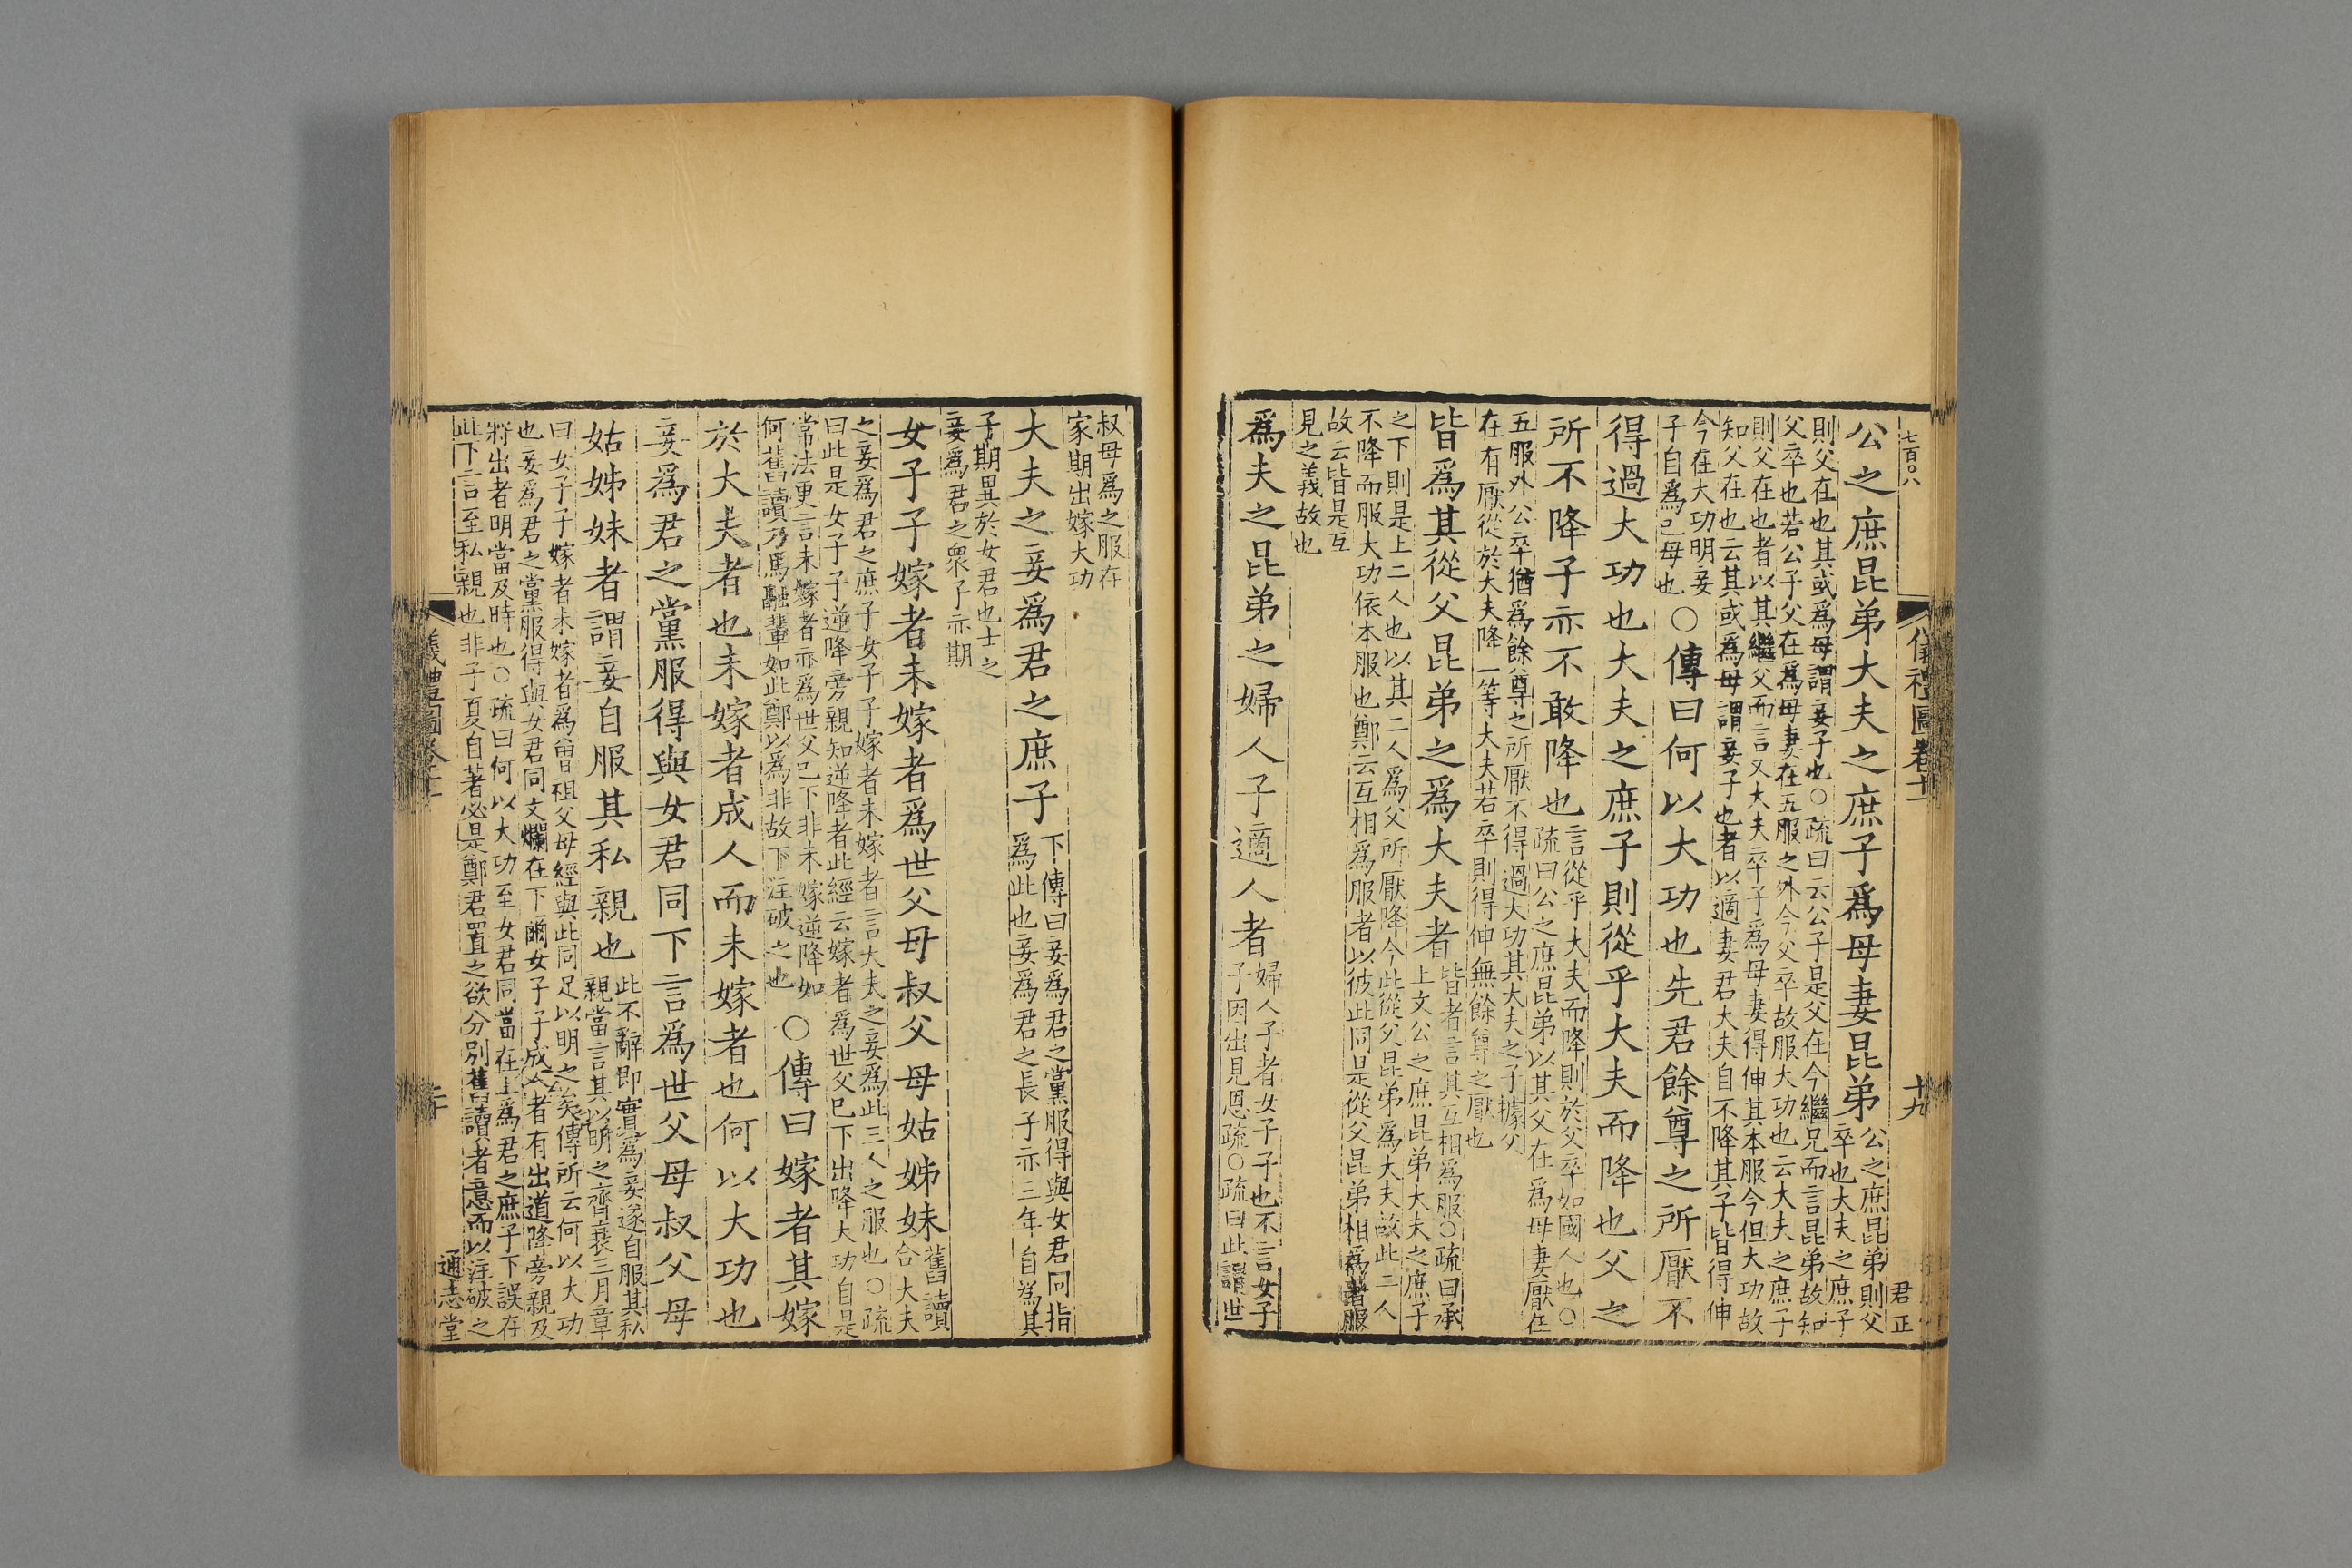 七百〇八
儀禮圖卷十一
十九
君正
公之庶昆弟大夫之庶子爲母妻昆弟
公之庶昆弟則父
卒也大夫之庶子
則父在也其或爲母謂妾子也○疏曰云公子是父在今繼兄而言昆弟故知
父卒也若公子父在爲母妻在五服之外今父卒故服大功也云大夫之庶子
則父在也者以其繼父而言又大夫卒子爲母妻得伸其本服今但大功故
知父在也云其或爲母謂妾子也者以適妻君大夫自不降其子皆得伸
今在大功明妾
子自爲己母也
○傳曰何以大功也先君餘尊之所厭不
得過大功也大夫之庶子則從乎大夫而降也父之
所不降子亦不敢降也
言從乎大夫而降則於父卒如國人也○
疏曰公之庶昆弟以其父在爲母妻厭在
五服外公卒猶爲餘尊之所厭不得過大功其大夫之子據父
在有厭從於大夫降一等大夫若卒則得伸無餘尊之厭也
皆爲其從父昆弟之爲大夫者
皆者言其互相爲服○疏曰承
上文公之庶昆弟大夫之庶子
之下則是上二人也以其二人爲父所厭降今此從父昆弟爲大夫故此二人
不降而服大功依本服也鄭云互相爲服者以彼此同是從父昆弟相爲著服
故云皆是互
見之義故也
爲夫之昆弟之婦人子適人者
婦人子者女子子也不言女子
子因出見恩疏○疏曰此謂世
叔母爲之服在
家期出嫁大功
大夫之妾爲君之庶子
下傳曰妾爲君之黨服得與女君同指
爲此也妾爲君之長子亦三年自爲其
子期異於女君也士之
妾爲君之衆子亦期
女子子嫁者未嫁者爲世父母叔父母姑姊妹
舊讀
合大夫
之妾爲君之庶子女子子嫁者未嫁者言大夫之妾爲此三人之服也○疏
曰此是女子子逆降旁親知逆降者此經云嫁者爲世父已下出降大功自是
常法更言未嫁者亦爲世父已下非未嫁逆降如
何舊讀乃馬融輩如此鄭以爲非故下注破之也
○傳曰嫁者其嫁
於大夫者也未嫁者成人而未嫁者也何以大功也
妾爲君之黨服得與女君同下言爲世父母叔父母
姑姊妹者謂妾自服其私親也
此不辭即實爲妾遂自服其私
親當言其以明之齊衰三月章
曰女子子嫁者未嫁者爲曾祖父母經與此同足以明之矣傳所云何以大功
也妾爲君之黨服得與女君同文爛在下爾女子子成人者有出道降旁親及
將出者明當及時也○疏曰何以大功至女君同當在上爲君之庶子下誤在
此下言至私親也非子夏自著必是鄭君置之欲分別舊讀者意而以注破之
儀禮圖卷十一
二十
通志堂